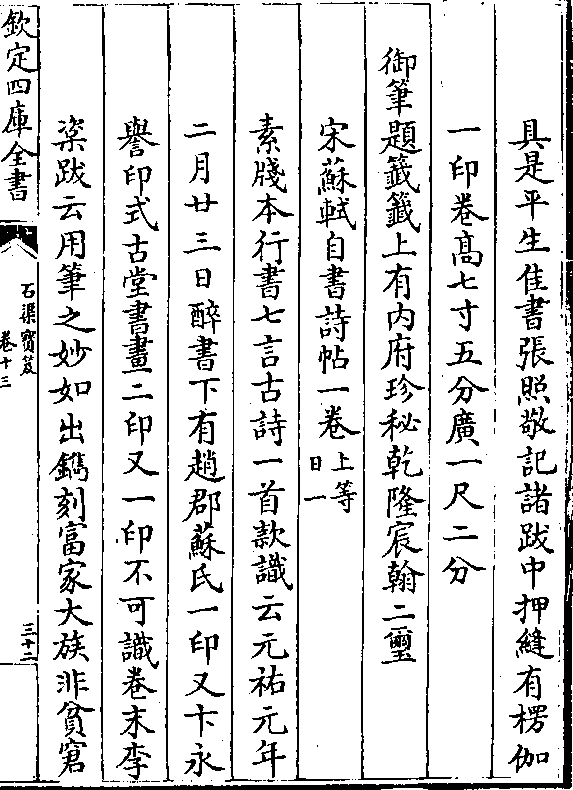 具是平生佳書張照敬記諸跋中押縫有楞伽
一印卷髙七寸五分廣一尺二分
御筆題籤籤上有内府珍秘乾隆宸翰二璽
宋蘇軾自書詩帖一卷上等
日一
素牋本行書七言古詩一首款識云元祐元年
二月廿三日醉書下有趙郡蘇氏一印又卞永
譽印式古堂書畫二印又一印不可識卷末李
楶跋云用筆之妙如出鐫刻富家大族非貧窘
欽定四庫全書
石渠寳笈
卷十三
三十二